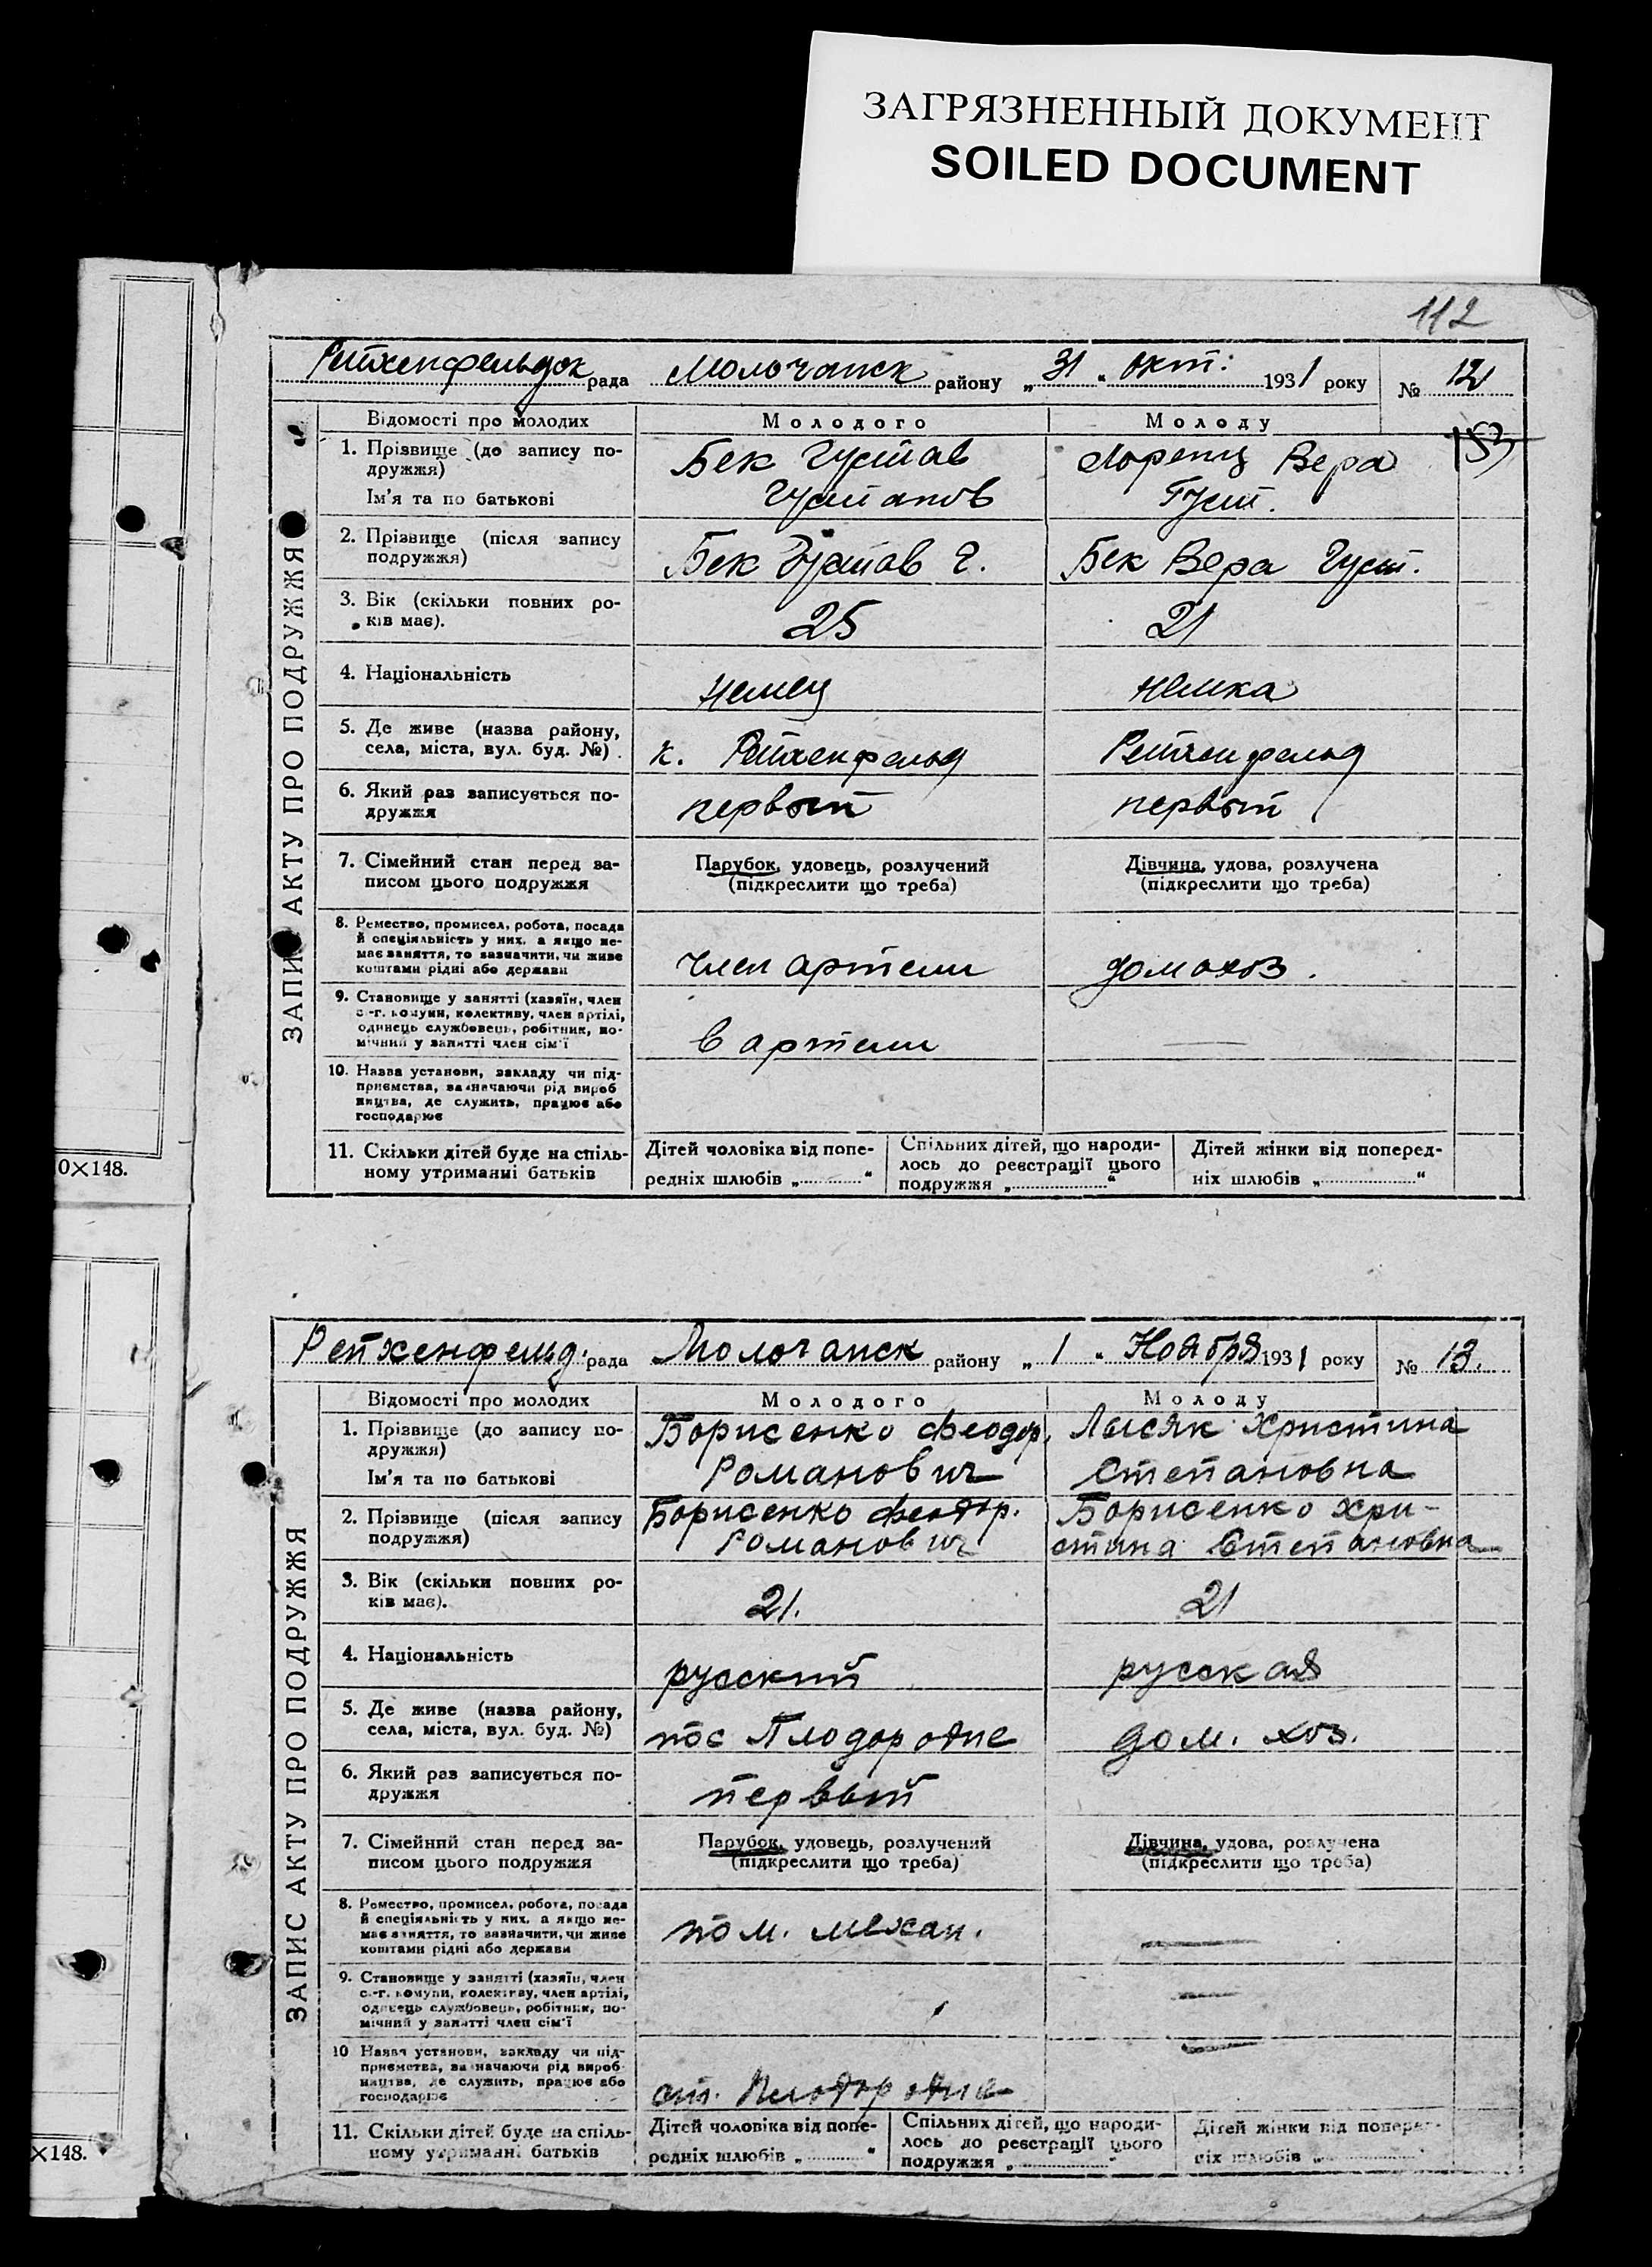 ЗАГРЯЗНЕННЫЙ ДОКУМЕНТ
SOILED DOCUMENT
112
рада Молочанск району „31“ Окт: 1931 року № 12
ЗАПИС АКТУ ПРО ПОДРУЖЖЯ
Відомості про молодих Молодого Молоду
153
1. Прізвище (до запису по-
дружжя)
Ім'я та по батькові
Бек Густав
Густавов
Лоренц Вера
Густ.
2. Прізвище (після запису
подружжя)
Бек Густав Г.
Бек Вера Густ.
3. Вік (скільки повних ро-
ків має).
25
21
4. Національність
немец
немка
5. Де живе (назва району,
села, міста, вул. буд. №)
к. Рейхенфельд
Рейхенфельд
6. Який раз записується по-
дружжя
первый
первый
7. Сімейний стан перед за-
писом цього подружжя
Парубок, удовець, розлучений
(підкреслити що треба)
Дівчина, удова, розлучена
(підкреслити що треба)
8. Ремество, промисел, робота, посада
й спеціяльність у них, а якщо не-
має заняття, то зазначити, чи живе
коштами рідні або держави
член артели
домохоз.
9. Становище у занятті (хазяїн, член
с.-г. комуни, колективу, член артілі,
одинець службовець, робітник, по-
мічний у занятті член сім'ї
в артели
—
10. Назва установи, закладу чи під-
приємства, зазначаючи рід вироб
ництва, де служить, працює або
господарює
11. Скільки дітей буде на спіль-
ному утриманні батьків
Дітей чоловіка від попе-
редніх шлюбів „..........“
Спільних дітей, що народи-
лось до реєстрації цього
подружжя „..........“
Дітей жінки від поперед-
ніх шлюбів „..........“
0×148.
Рейхенфельд. рада Молочанск району „1“ Ноября 1931 року № 13.
ЗАПИС АКТУ ПРО ПОДРУЖЖЯ
Відомості про молодих Молодого Молоду
1. Прізвище (до запису по-
дружжя)
Ім'я та по батькові
Борисенко Феодор.
Романович
Лысяк Христина
Степановна
2. Прізвище (після запису
подружжя)
Борисенко Феодор.
Романович
Борисенко Хри-
стина Степановна
3. Вік (скільки повних ро-
ків має).
21.
21
4. Національність
русский
русская
5. Де живе (назва району,
села, міста, вул. буд. №)
пос Плодородие
дом. хоз.
6. Який раз записується по-
дружжя
первый
7. Сімейний стан перед за-
писом цього подружжя
Парубок, удовець, розлучений
(підкреслити що треба)
Дівчина, удова, розлучена
(підкреслити що треба)
8. Ремество, промисел, робота, посада
й спеціяльність у них, а якщо не-
має заняття, то зазначити, чи живе
коштами рідні або держави
пом. механ.
—
9. Становище у занятті (хазяїн, член
с.-г. комуни, колективу, член артілі,
одинець службовець, робітник, по-
мічний у занятті член сім'ї
—
10 Назва установи, закладу чи під-
приємства, зазначаючи рід вироб-
ництва, де служить, працює або
господарює
ст. Плодородие
—
11. Скільки дітей буде на спіль-
ному утриманні батьків
Дітей чоловіка від попе-
редніх шлюбів „..........“
Спільних дітей, що народи-
лось до реєстрації цього
подружжя „..........“
Дітей жінки від поперед-
ніх шлюбів „..........“
×148.